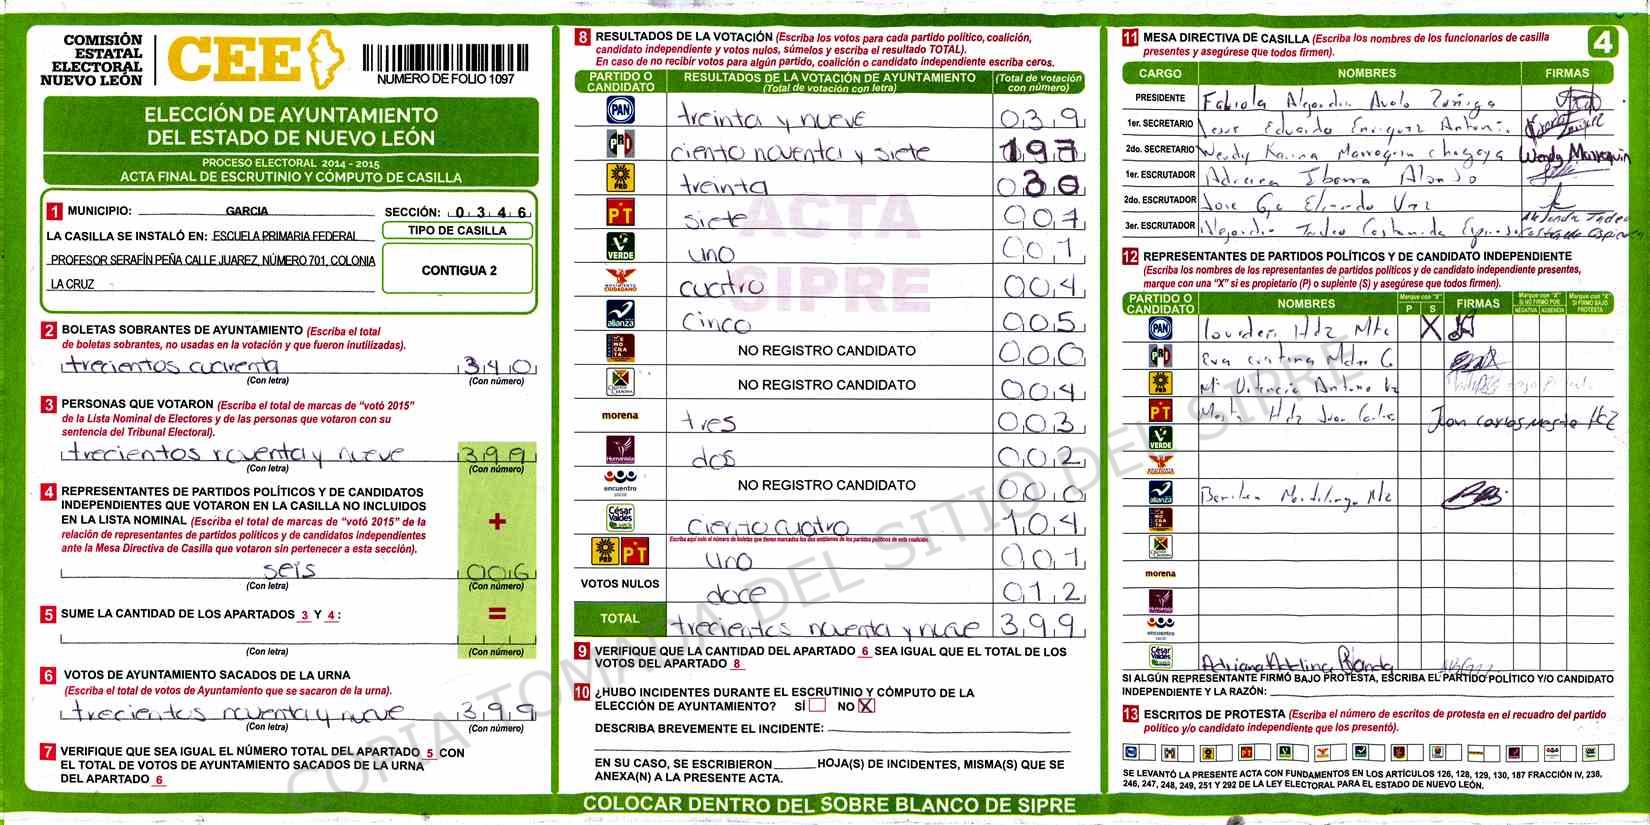 COMISIÓN
ESTATAL
ELECTORAL
NUEVO LEÓN
CEE
NUMERO DE FOLIO 1097
ELECCIÓN DE AYUNTAMIENTO
DEL ESTADO DE NUEVO LEÓN
PROCESO ELECTORAL 2014 - 2015
ACTA FINAL DE ESCRUTINIO Y CÓMPUTO DE CASILLA
1 MUNICIPIO: GARCIA SECCIÓN: 0346
LA CASILLA SE INSTALÓ EN: ESCUELA PRIMARIA FEDERAL
PROFESOR SERAFÍN PEÑA CALLE JUAREZ, NÚMERO 701, COLONIA
LA CRUZ
TIPO DE CASILLA
CONTIGUA 2
2 BOLETAS SOBRANTES DE AYUNTAMIENTO (Escriba el total
de boletas sobrantes, no usadas en la votación y que fueron inutilizadas).
trecientos cuarenta 340
(Con letra) (Con número)
3 PERSONAS QUE VOTARON (Escriba el total de marcas de "votó 2015"
de la Lista Nominal de Electores y de las personas que votaron con su
sentencia del Tribunal Electoral).
trecientos noventa y nueve 399
(Con letra) (Con número)
4 REPRESENTANTES DE PARTIDOS POLÍTICOS Y DE CANDIDATOS
INDEPENDIENTES QUE VOTARON EN LA CASILLA NO INCLUIDOS
EN LA LISTA NOMINAL (Escriba el total de marcas de "votó 2015" de la
relación de representantes de partidos políticos y de candidatos independientes
ante la Mesa Directiva de Casilla que votaron sin pertenecer a esta sección).
+
seis 006
(Con letra) (Con número)
5 SUME LA CANTIDAD DE LOS APARTADOS 3 Y 4 :
=
(Con letra) (Con número)
6 VOTOS DE AYUNTAMIENTO SACADOS DE LA URNA
(Escriba el total de votos de Ayuntamiento que se sacaron de la urna).
trecientos noventa y nueve 399
(Con letra) (Con número)
7 VERIFIQUE QUE SEA IGUAL EL NÚMERO TOTAL DEL APARTADO 5 CON
EL TOTAL DE VOTOS DE AYUNTAMIENTO SACADOS DE LA URNA
DEL APARTADO 6
8 RESULTADOS DE LA VOTACIÓN (Escriba los votos para cada partido político, coalición,
candidato independiente y votos nulos, súmelos y escriba el resultado TOTAL).
En caso de no recibir votos para algún partido, coalición o candidato independiente escriba ceros.
PARTIDO O CANDIDATO RESULTADOS DE LA VOTACIÓN DE AYUNTAMIENTO (Total de votación con letra) (Total de votación con número)
PAN treinta y nueve 039
PRD ciento noventa y siete 197
PRD treinta 030
PT siete 007
VERDE uno 001
MOVIMIENTO CIUDADANO cuatro 004
alianza cinco 005
NO REGISTRO CANDIDATO 000
NO REGISTRO CANDIDATO 004
morena tres 003
Humanista dos 002
encuentro social NO REGISTRO CANDIDATO 000
César Valdes ciento cuatro 104
Escriba aquí solo el número de boletas que tienen marcados los dos emblemas de los partidos políticos de esta coalición.
PRD PT uno 001
VOTOS NULOS doce 012
TOTAL trecientos noventa y nueve 399
ACTA
SIPRE
9 VERIFIQUE QUE LA CANTIDAD DEL APARTADO 6 SEA IGUAL QUE EL TOTAL DE LOS
VOTOS DEL APARTADO 8
10 ¿HUBO INCIDENTES DURANTE EL ESCRUTINIO Y CÓMPUTO DE LA
ELECCIÓN DE AYUNTAMIENTO? SÍ NO X
DESCRIBA BREVEMENTE EL INCIDENTE:
EN SU CASO, SE ESCRIBIERON HOJA(S) DE INCIDENTES, MISMA(S) QUE SE
ANEXA(N) A LA PRESENTE ACTA.
COLOCAR DENTRO DEL SOBRE BLANCO DE SIPRE
11 MESA DIRECTIVA DE CASILLA (Escriba los nombres de los funcionarios de casilla
presentes y asegúrese que todos firmen).
4
CARGO NOMBRES FIRMAS
PRESIDENTE Fabiola Zuñiga
1er. SECRETARIO Eduardo Enriquez Antonio
2do. SECRETARIO Wendy Karina Marroquin Wendy Marroquin
1er. ESCRUTADOR Adriana Ibarra Alonso
2do. ESCRUTADOR Jose
3er. ESCRUTADOR Alejandro Tadeo Castañeda
12 REPRESENTANTES DE PARTIDOS POLÍTICOS Y DE CANDIDATO INDEPENDIENTE
(Escriba los nombres de los representantes de partidos políticos y de candidato independiente presentes,
marque con una "X" si es propietario (P) o suplente (S) y asegúrese que todos firmen).
PARTIDO O CANDIDATO NOMBRES Marque con "X" P S FIRMAS Marque con "X" SI NO FIRMÓ POR: NEGATIVA AUSENCIA Marque con "X" SI FIRMÓ BAJO PROTESTA
PAN Lourdes Hdz X
Eva Cristina
PRD
PT Hdz Juan Carlos Juan Carlos
VERDE
alianza
morena
Humanista
encuentro social
César Valdes Adriana
SI ALGÚN REPRESENTANTE FIRMÓ BAJO PROTESTA, ESCRIBA EL PARTIDO POLÍTICO Y/O CANDIDATO
INDEPENDIENTE Y LA RAZÓN:
13 ESCRITOS DE PROTESTA (Escriba el número de escritos de protesta en el recuadro del partido
político y/o candidato independiente que los presentó).
SE LEVANTÓ LA PRESENTE ACTA CON FUNDAMENTOS EN LOS ARTÍCULOS 126, 128, 129, 130, 187 FRACCIÓN IV, 238,
246, 247, 248, 249, 251 Y 292 DE LA LEY ELECTORAL PARA EL ESTADO DE NUEVO LEÓN.
COPIA TOMADA DEL SITIO DEL SIPRE